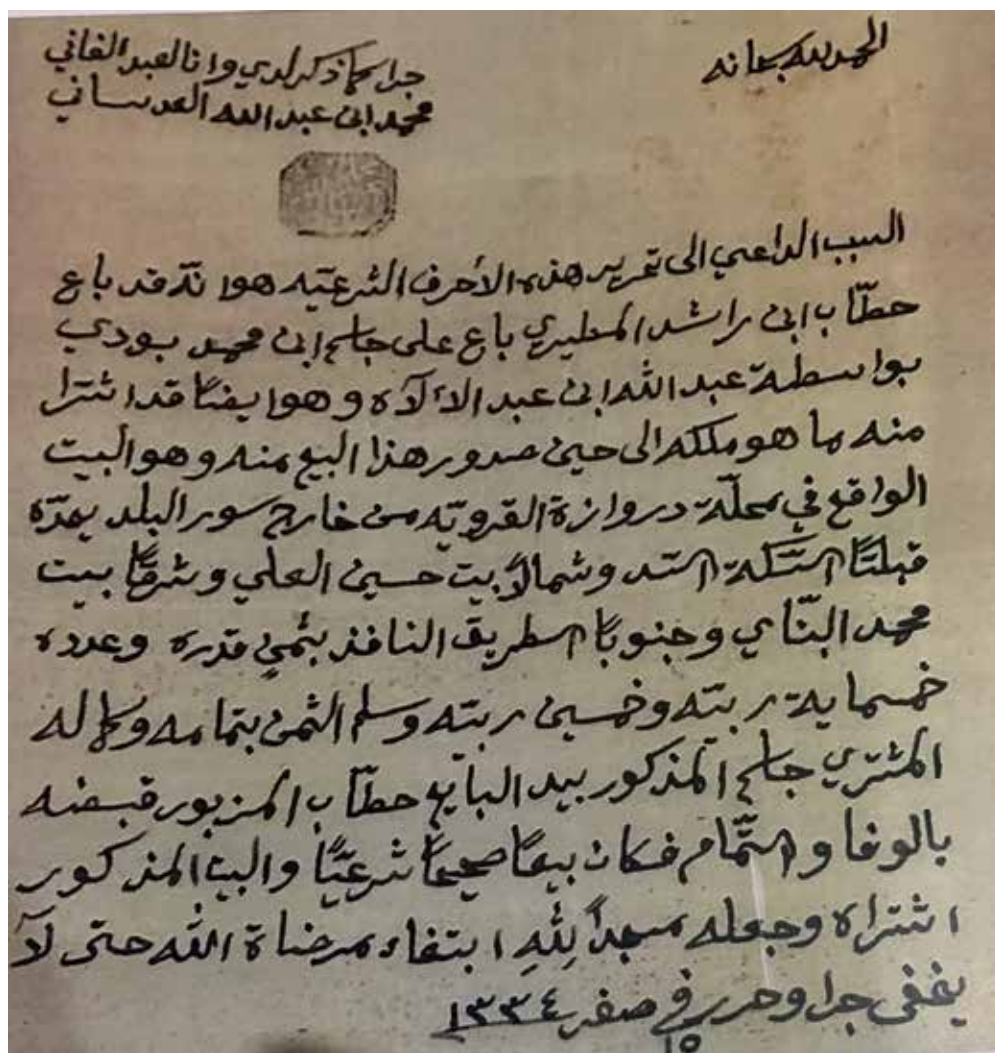 الحمد لله سبحانه
جرا كما ذكر لدي وانا العبد الفاني
محمد ابن عبد الله العدساني
السبب الداعي الى تحرير هذه الأحرف الشرعيّه هوا نّه قد باع
حطّاب ابن راشد المطيري باع على جاسم ابن محمد بودي
بواسطة عبد الله ابن عبد الألاه وهو ايضًا قد اشترا
منه ما هو ملكه الى حين صدور هذا البيع منه وهو البيت
الواقع في محلّة دروازة القرويّه من خارج سور البلد يحدّه
قبلتًا السّكة السّد وشمالاً بيت حسين العلي وشرقًا بيت
محمد البنّاي وجنوبًا الطريق النافذ بثمن قدره وعدده
خمسماية ربيّه وخمسين ربيّه وسلم الثمن بتمامه وكماله
المشتري جاسم المذكور بيد البايع حطّاب المزبور قبضه
بالوفا والتّمام فكان بيعًا صحيحًا شرعيًّا والبيت المذكور
اشتراه وجعله مسجداً لِلّهِ ابتغاء مرضاة الله حتى لا
يخفى جرا وحرر في ١٥ صفر ١٣٣٤